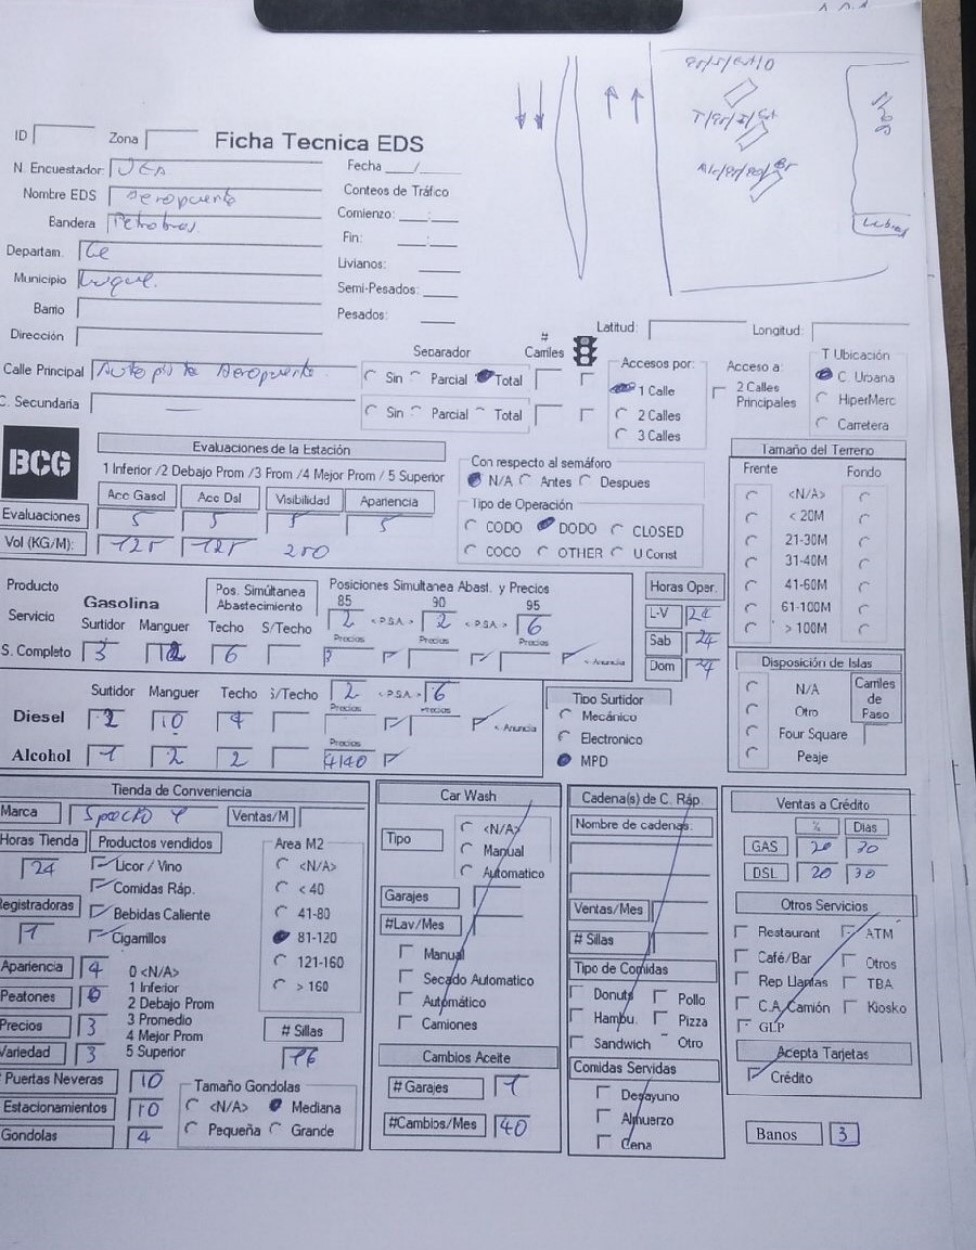 ID Zona Ficha Tecnica EDS
N. Encuestador: Fecha ___/___
Nombre EDS Aeropuerto Conteos de Tráfico
Bandera Petrobras. Comienzo: ___:___
Departam. Ce Fin: ___:___
Municipio Luque. Livianos: ___
Barrio Semi-Pesados: ___
Dirección Pesados: ___
Shop
Latitud: Longitud:
Separador # Carriles Accesos por: Acceso a: T Ubicación
Calle Principal Autopista Aeropuerto. Sin Parcial Total 1 Calle 2 Calles Principales C. Urbana
C. Secundaria — Sin Parcial Total 2 Calles HiperMerc
3 Calles Carretera
BCG
Evaluaciones de la Estación
1 Inferior /2 Debajo Prom /3 Prom /4 Mejor Prom / 5 Superior
Acc Gasol Acc Dsl Visibilidad Apariencia
Evaluaciones 5 5 5 5
Vol (KG/M): 125 125 250
Con respecto al semáforo
N/A Antes Despues
Tipo de Operación
CODO DODO CLOSED
COCO OTHER U Const
Tamaño del Terreno
Frente Fondo
<N/A>
< 20M
21-30M
31-40M
41-60M
61-100M
> 100M
Producto
Servicio Gasolina
Pos. Simúltanea Abastecimiento
Posiciones Simultanea Abast. y Precios
85 90 95
2 <P.S.A.> 2 <P.S.A.> 6
Surtidor Manguer Techo S/Techo Precios Precios Precios
S. Completo 3 6 < Anuncia
Horas Oper.
L-V 24
Sab 24
Dom 24
Surtidor Manguer Techo S/Techo 2 <P.S.A.> 6
Precios Precios
Diesel 2 10 4 < Anuncia
Precios
Alcohol 1 2 2 4140
Tipo Surtidor
Mecánico
Electronico
MPD
Disposición de Islas
N/A
Otro
Four Square
Peaje
Carriles de Paso
Tienda de Conveniencia
Marca Spacio 1 Ventas/M
Horas Tienda Productos vendidos Area M2
24 Licor / Vino <N/A>
Comidas Ráp. < 40
Registradoras Bebidas Caliente 41-80
1 Cigarrillos 81-120
121-160
> 160
Apariencia 4 0 <N/A>
Peatones 1 Inferior
2 Debajo Prom
Precios 3 3 Promedio
4 Mejor Prom
Variedad 3 5 Superior
# Sillas
16
# Puertas Neveras 10
Estacionamientos 10
Gondolas 4
Tamaño Gondolas
<N/A> Mediana
Pequeña Grande
Car Wash
Tipo <N/A>
Manual
Automatico
Garajes
#Lav/Mes
Manual
Secado Automatico
Automático
Camiones
Cambios Aceite
# Garajes 1
#Cambios/Mes 40
Cadena(s) de C. Ráp.
Nombre de cadenas:
Ventas/Mes
# Sillas
Tipo de Comidas
Donuts Pollo
Hambu. Pizza
Sandwich Otro
Comidas Servidas
Desayuno
Almuerzo
Cena
Ventas a Crédito
% Dias
GAS 20 30
DSL 20 30
Otros Servicios
Restaurant ATM
Café/Bar Otros
Rep Llantas TBA
C.A. Camión Kiosko
GLP
Acepta Tarjetas
Crédito
Banos 3